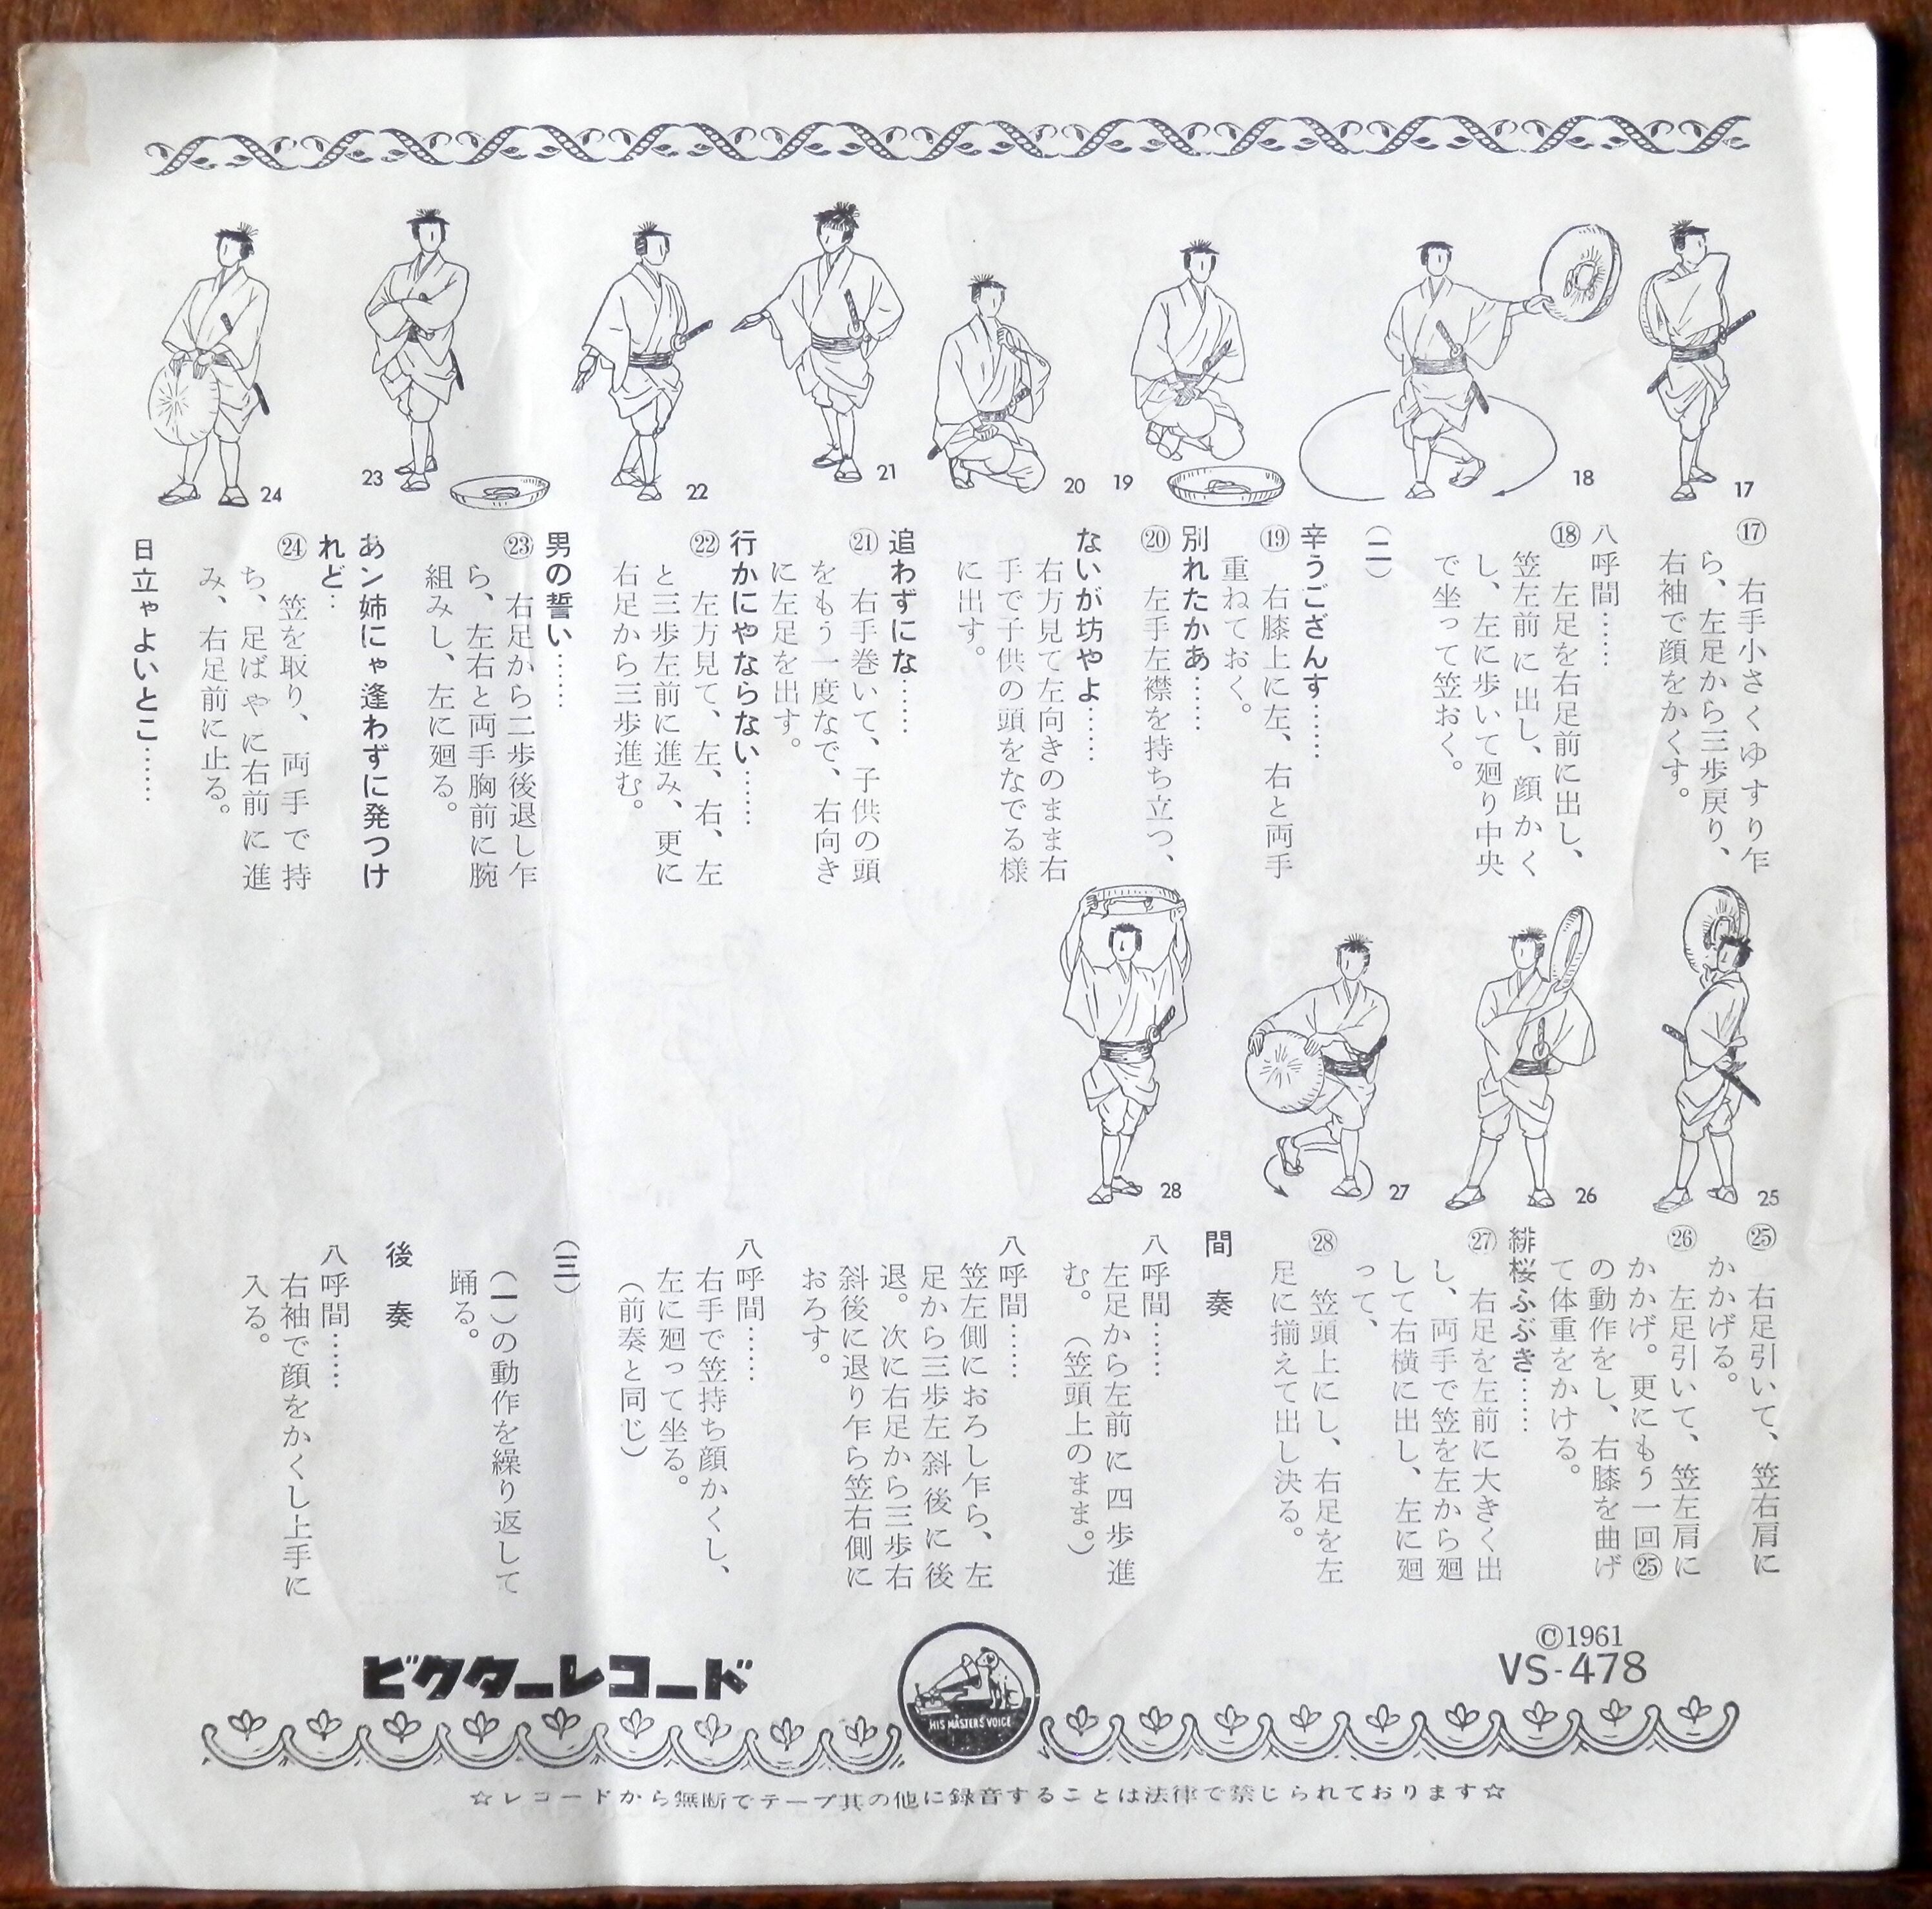 17
18
19
20
21
22
23
24
⑰ 右手小さくゆすり乍
ら、左足から三歩戻り、
右袖で顔をかくす。
八呼間……
⑱ 左足を右足前に出し、
笠左前に出し、顔かく
し、左に歩いて廻り中央
で坐って笠おく。
(二)
辛うござんす……
⑲ 右膝上に左、右と両手
重ねておく。
別れたかあ……
⑳ 左手左襟を持ち立つ、
ないが坊やよ……
右方見て左向きのまま右
手で子供の頭をなでる様
に出す。
追わずにな……
㉑ 右手巻いて、子供の頭
をもう一度なで、右向き
に左足を出す。
行かにゃならない……
㉒ 左方見て、左、右、左
と三歩左前に進み、更に
右足から三歩進む。
男の誓い……
㉓ 右足から二歩後退し乍
ら、左右と両手胸前に腕
組みし、左に廻る。
あン姉にゃ逢わずに発つけ
れど…
㉔ 笠を取り、両手で持
ち、足ばやに右前に進
み、右足前に止る。
日立ゃよいとこ……
25
26
27
28
㉕ 右足引いて、笠右肩に
かかげる。
㉖ 左足引いて、笠左肩に
かかげ。更にもう一回㉕
の動作をし、右膝を曲げ
て体重をかける。
緋桜ふぶき……
㉗ 右足を左前に大きく出
し、両手で笠を左から廻
して右横に出し、左に廻
って、
㉘ 笠頭上にし、右足を左
足に揃えて出し決る。
間奏
八呼間……
左足から左前に四歩進
む。(笠頭上のまま。)
八呼間……
笠左側におろし乍ら、左
足から三歩左斜後に後
退。次に右足から三歩右
斜後に退り乍ら笠右側に
おろす。
八呼間……
右手で笠持ち顔かくし、
左に廻って坐る。
(前奏と同じ)
(三)
(一)の動作を繰り返して
踊る。
後奏
八呼間……
右袖で顔をかくし上手に
入る。
©1961
VS-478
HIS MASTER'S VOICE
ビクターレコード
☆レコードから無断でテープ其の他に録音することは法律で禁じられております☆